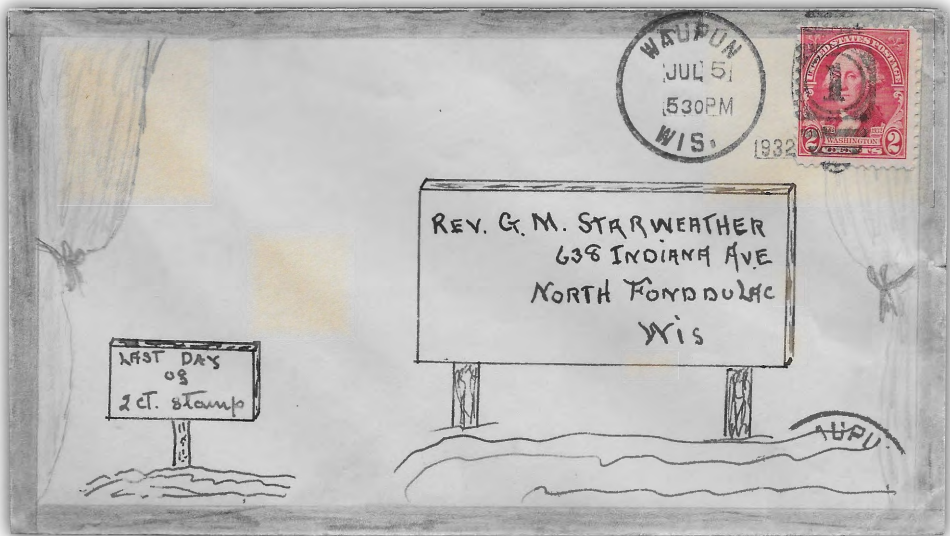 WAUPUN
JUL 5
530PM
WIS.
1932
UNITED STATES POSTAGE
1732
WASHINGTON
2 CENTS 2
REV. G. M. STARWEATHER
638 INDIANA AVE
NORTH FONDDULAC
WIS
LAST DAY
OF
2 CT. Stamp
AUPU